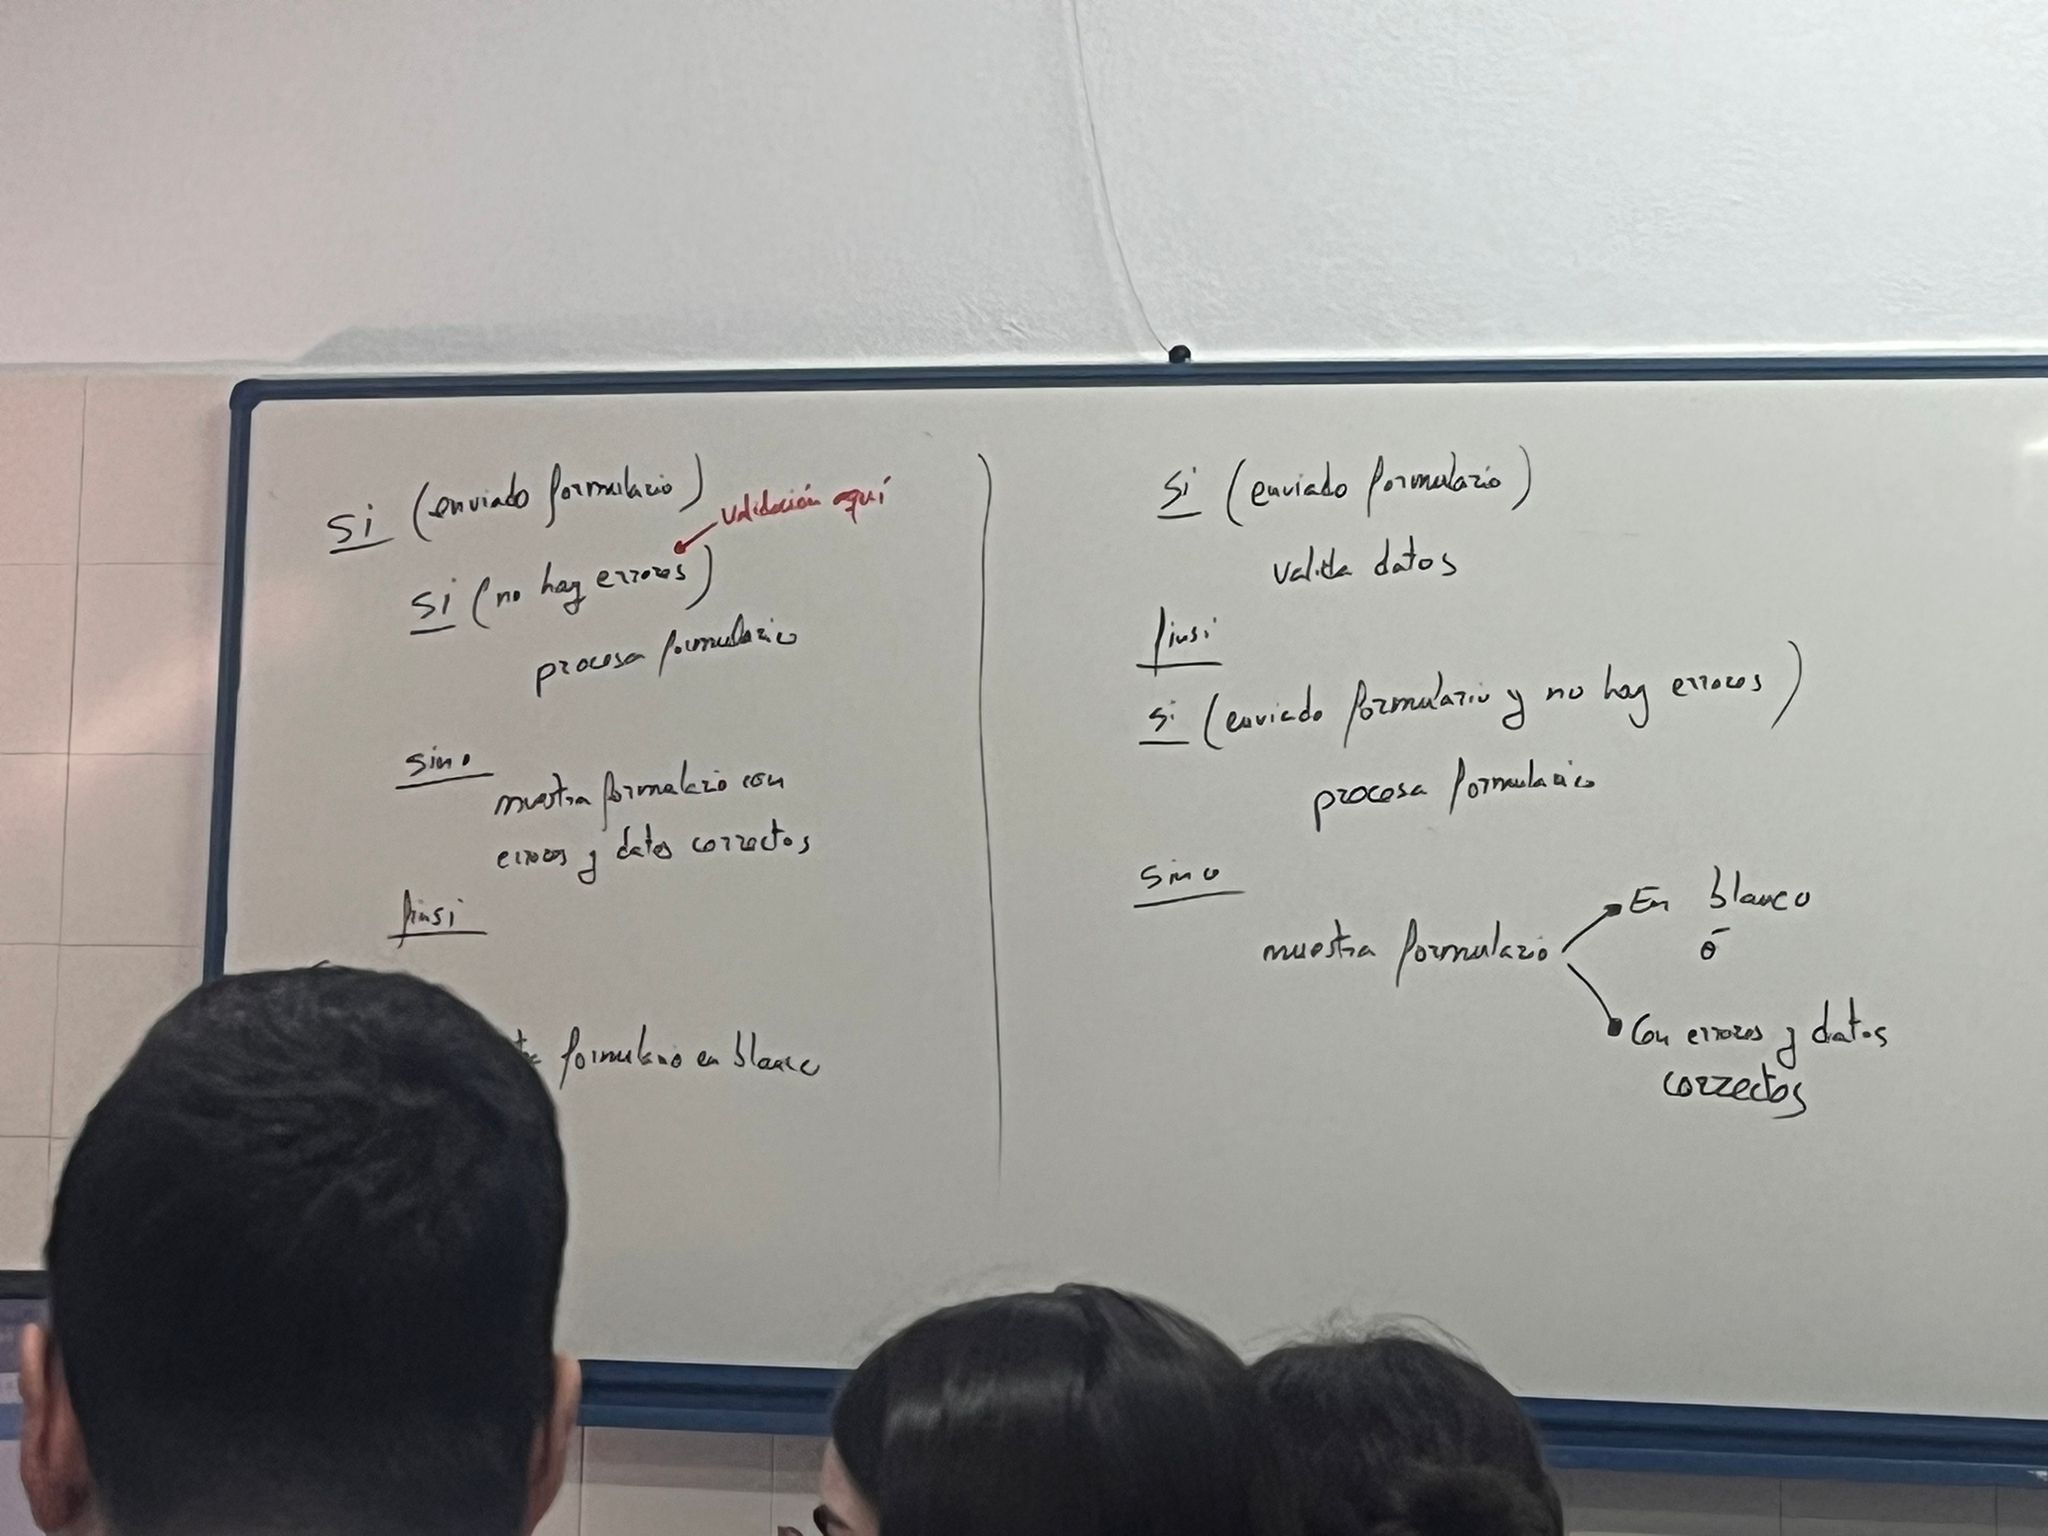 si (enviado formulario)
validación aquí
si (no hay errores)
procesa formulario
sino
muestra formulario con
errores y datos correctos
finsi
formulario en blanco
si (enviado formulario)
valida datos
finsi
si (enviado formulario y no hay errores)
procesa formulario
sino
muestra formulario
En blanco
ó
Con errores y datos
correctos